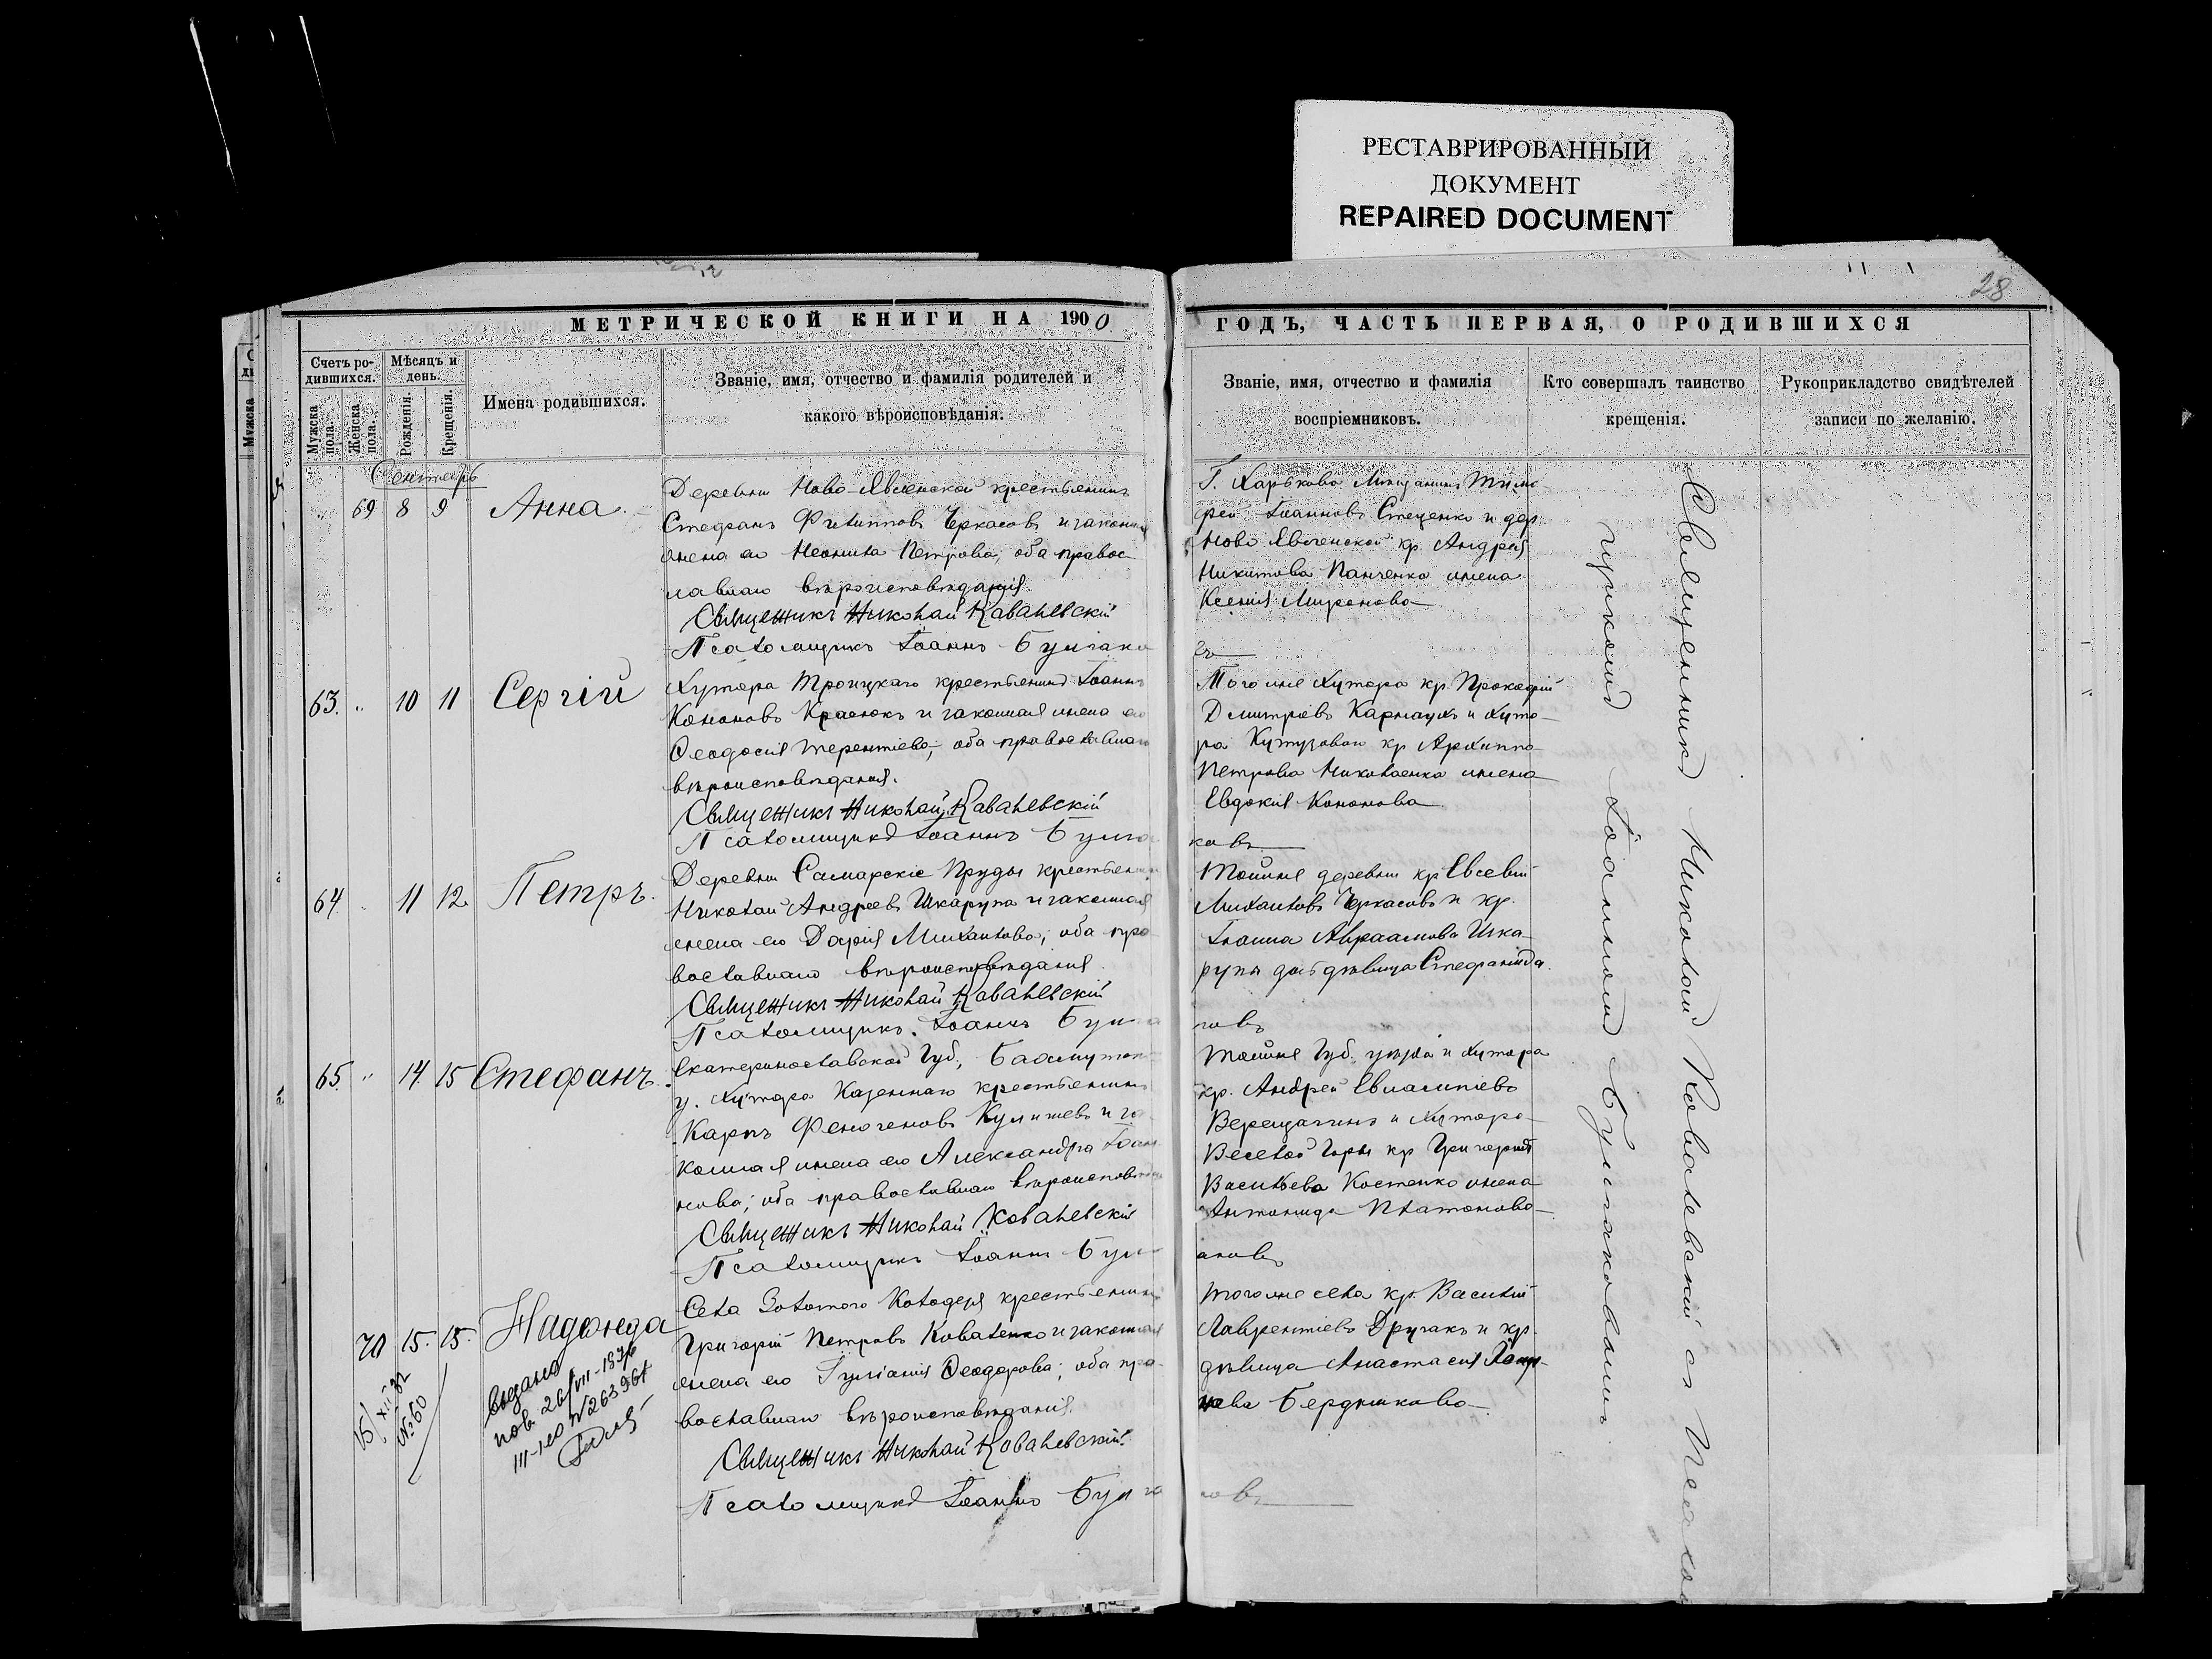 РЕСТАВРИРОВАННЫЙ
ДОКУМЕНТ
REPAIRED DOCUMENT
28
МЕТРИЧЕСКОЙ КНИГИ НА 1900
ГОДЪ, ЧАСТЬ ПЕРВАЯ, О РОДИВШИХСЯ
Счетъ ро-
дившихся.
Мужска
пола.
Женска
пола.
Мѣсяцъ и
день.
Рожденія.
Крещенія.
Имена родившихся.
Званіе, имя, отчество и фамилія родителей и
какого вѣроисповѣданія.
Званіе, имя, отчество и фамилія
воспріемниковъ.
Кто совершалъ таинство
крещенія.
Рукоприкладство свидѣтелей
записи по желанію.
Сентябрь
69 8 9 Анна.
Деревни Ново-Явленской крестьянинъ
Стефанъ Филипповъ Черкасовъ и законная
жена его Неонила Петрова, оба правос-
лавнаго вѣроисповѣданія.
Священникъ Николай Ковалевскій
Псаломщикъ Іоаннъ Булгако
Г. Харькова Мѣщанинъ Тимо
фей Іоанновъ Стеценко и дер
Ново Явленской кр. Андрея
Никитова Панченка жена
Ксенія Миронова
въ
63. " 10 11 Сергій
Хутора Троицкаго крестьянинъ Іоаннъ
Кононовъ Краснокъ и законная жена его
Ѳеодосія Терентіева, оба православнаго
вѣроисповѣданія.
Священникъ Николай Ковалевскій
Псаломщикъ Іоаннъ Булга
Того же хутора кр. Прокофій
Дмитріевъ Карнаухъ и хуто-
ра Кутузовки кр Архиппа
Петрова Николаенка жена
Евдокія Кононова
ковъ
64. 11 12. Петръ.
Деревни Самарскіе Пруды крестьянинъ
Николай Андреевъ Шкарупа и законная
жена его Дарія Михаилова; оба пра
вославнаго вѣроисповѣданія
Священникъ Николай Ковалевскій
Псаломщикъ Іоаннъ Булга
Тойже деревни кр Евсевій
Михаиловъ Черкасовъ и кр.
Іоанна Авраамова Шка-
рупы дочь дѣвица Стефанида.
ковъ
65. " 14. 15 Стефанъ.
Екатеринославской Губ., Бахмутск
у. хутора Казеннаго крестьянинъ
Карпъ Феногеновъ Кулишевъ и за
конная жена его Александра Іоан
нова; оба православнаго вѣроисповѣданія
Священникъ Николай Ковалевскій
Псаломщикъ Іоаннъ Булг
Тойже Губ. уѣзда и хутора
кр. Андрей Евлампіевъ
Верещагинъ и хутора
Веселой Горы кр Григорія
Васильева Костенко жена
Антонида Платонова
аковъ
70 15. 15. Надежда
Села Золотого Колодезя крестьянинъ
Григорій Петровъ Коваленко и законная
жена его Іуліанія Ѳеодорова; оба пра-
вославнаго вѣроисповѣданія.
Священникъ Николай Ковалевскій.
Псаломщикъ Іоаннъ Булга
Тогоже села кр. Василій
Лаврентіевъ Другакъ и кр.
дѣвица Анастасія
Бердникова
ковъ
15/XII 32
№ 60
Выдано
пов. 26/VII-1937р
III-ІЮ N 263961
Священникъ Николай Ковалевскій съ Псалом
щикомъ Іоанномъ Булгаковымъ